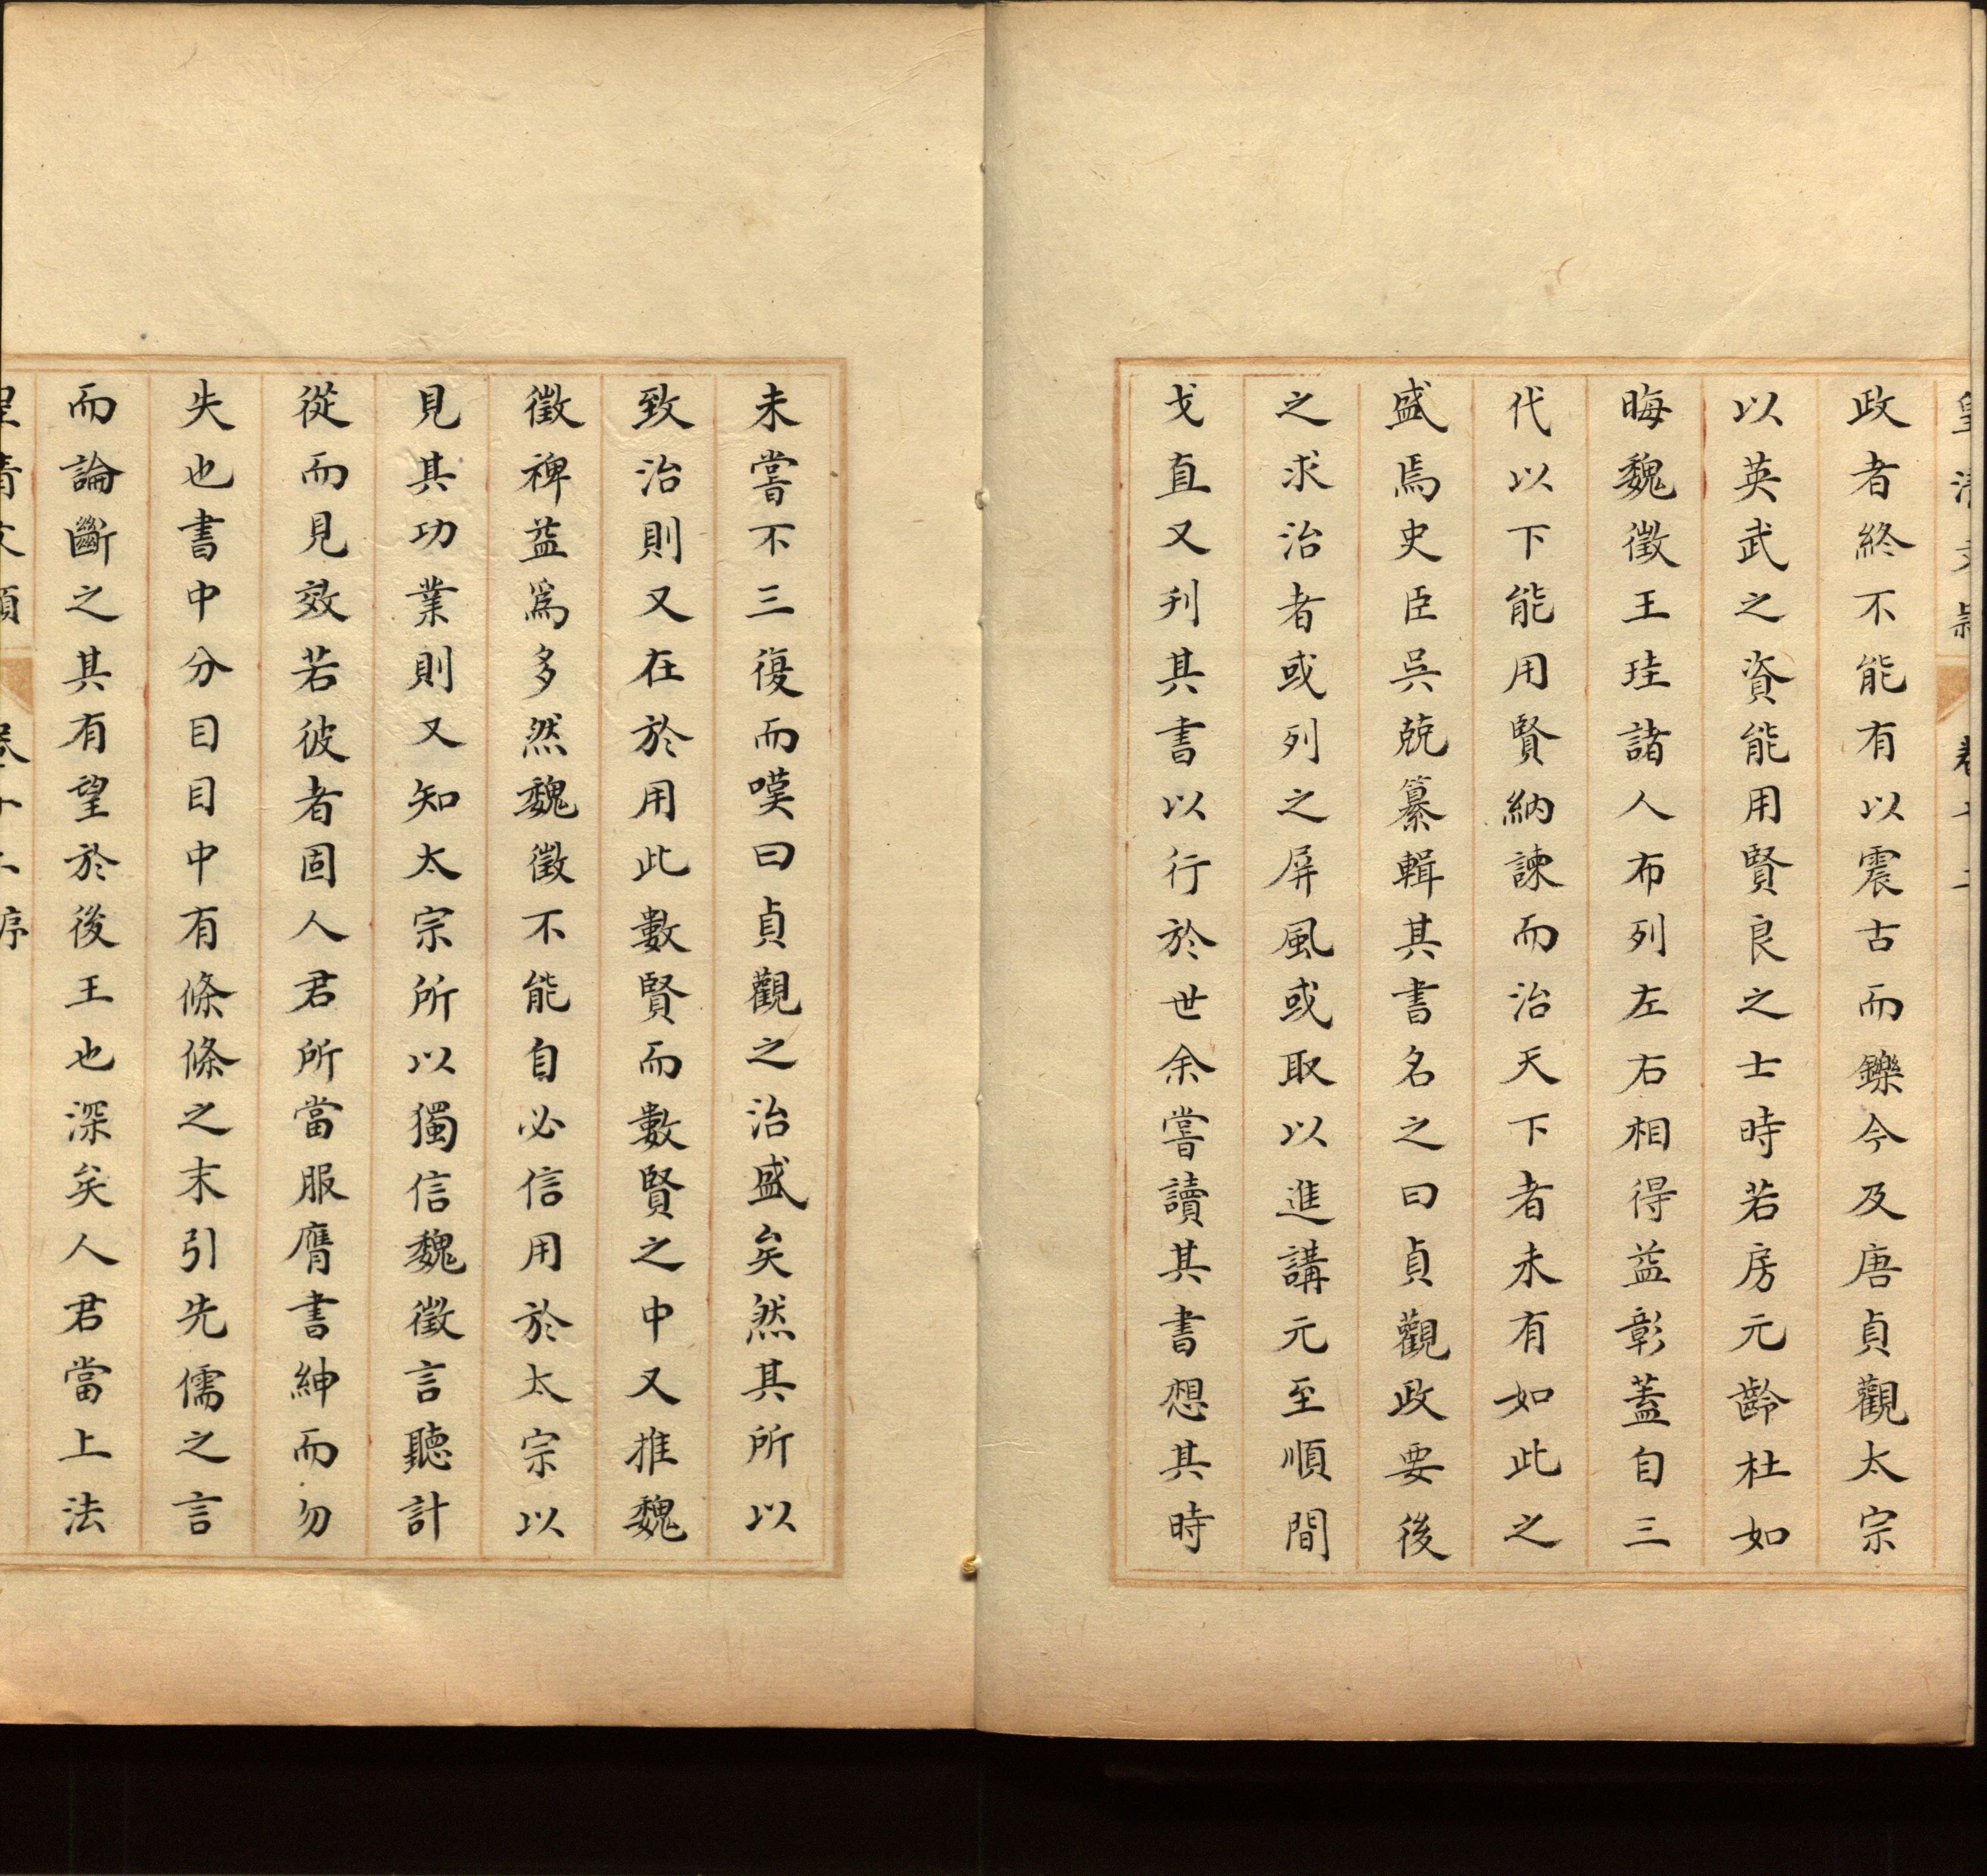 皇清文穎 卷十二
政者終不能有以震古而鑠今及唐貞觀太宗
以英武之資能用賢良之士時若房元齡杜如
晦魏徵王珪諸人布列左右相得益彰蓋自三
代以下能用賢納諫而治天下者未有如此之
盛焉史臣吳兢纂輯其書名之曰貞觀政要後
之求治者或列之屏風或取以進講元至順間
戈直又刋其書以行於世余嘗讀其書想其時
未嘗不三復而嘆曰貞觀之治盛矣然其所以
致治則又在於用此數賢而數賢之中又推魏
徵裨益為多然魏徵不能自必信用於太宗以
見其功業則又知太宗所以獨信魏徵言聽計
從而見效若彼者固人君所當服膺書紳而勿
失也書中分目目中有條條之末引先儒之言
而論斷之其有望於後王也深矣人君當上法
皇清文穎 卷十二 序